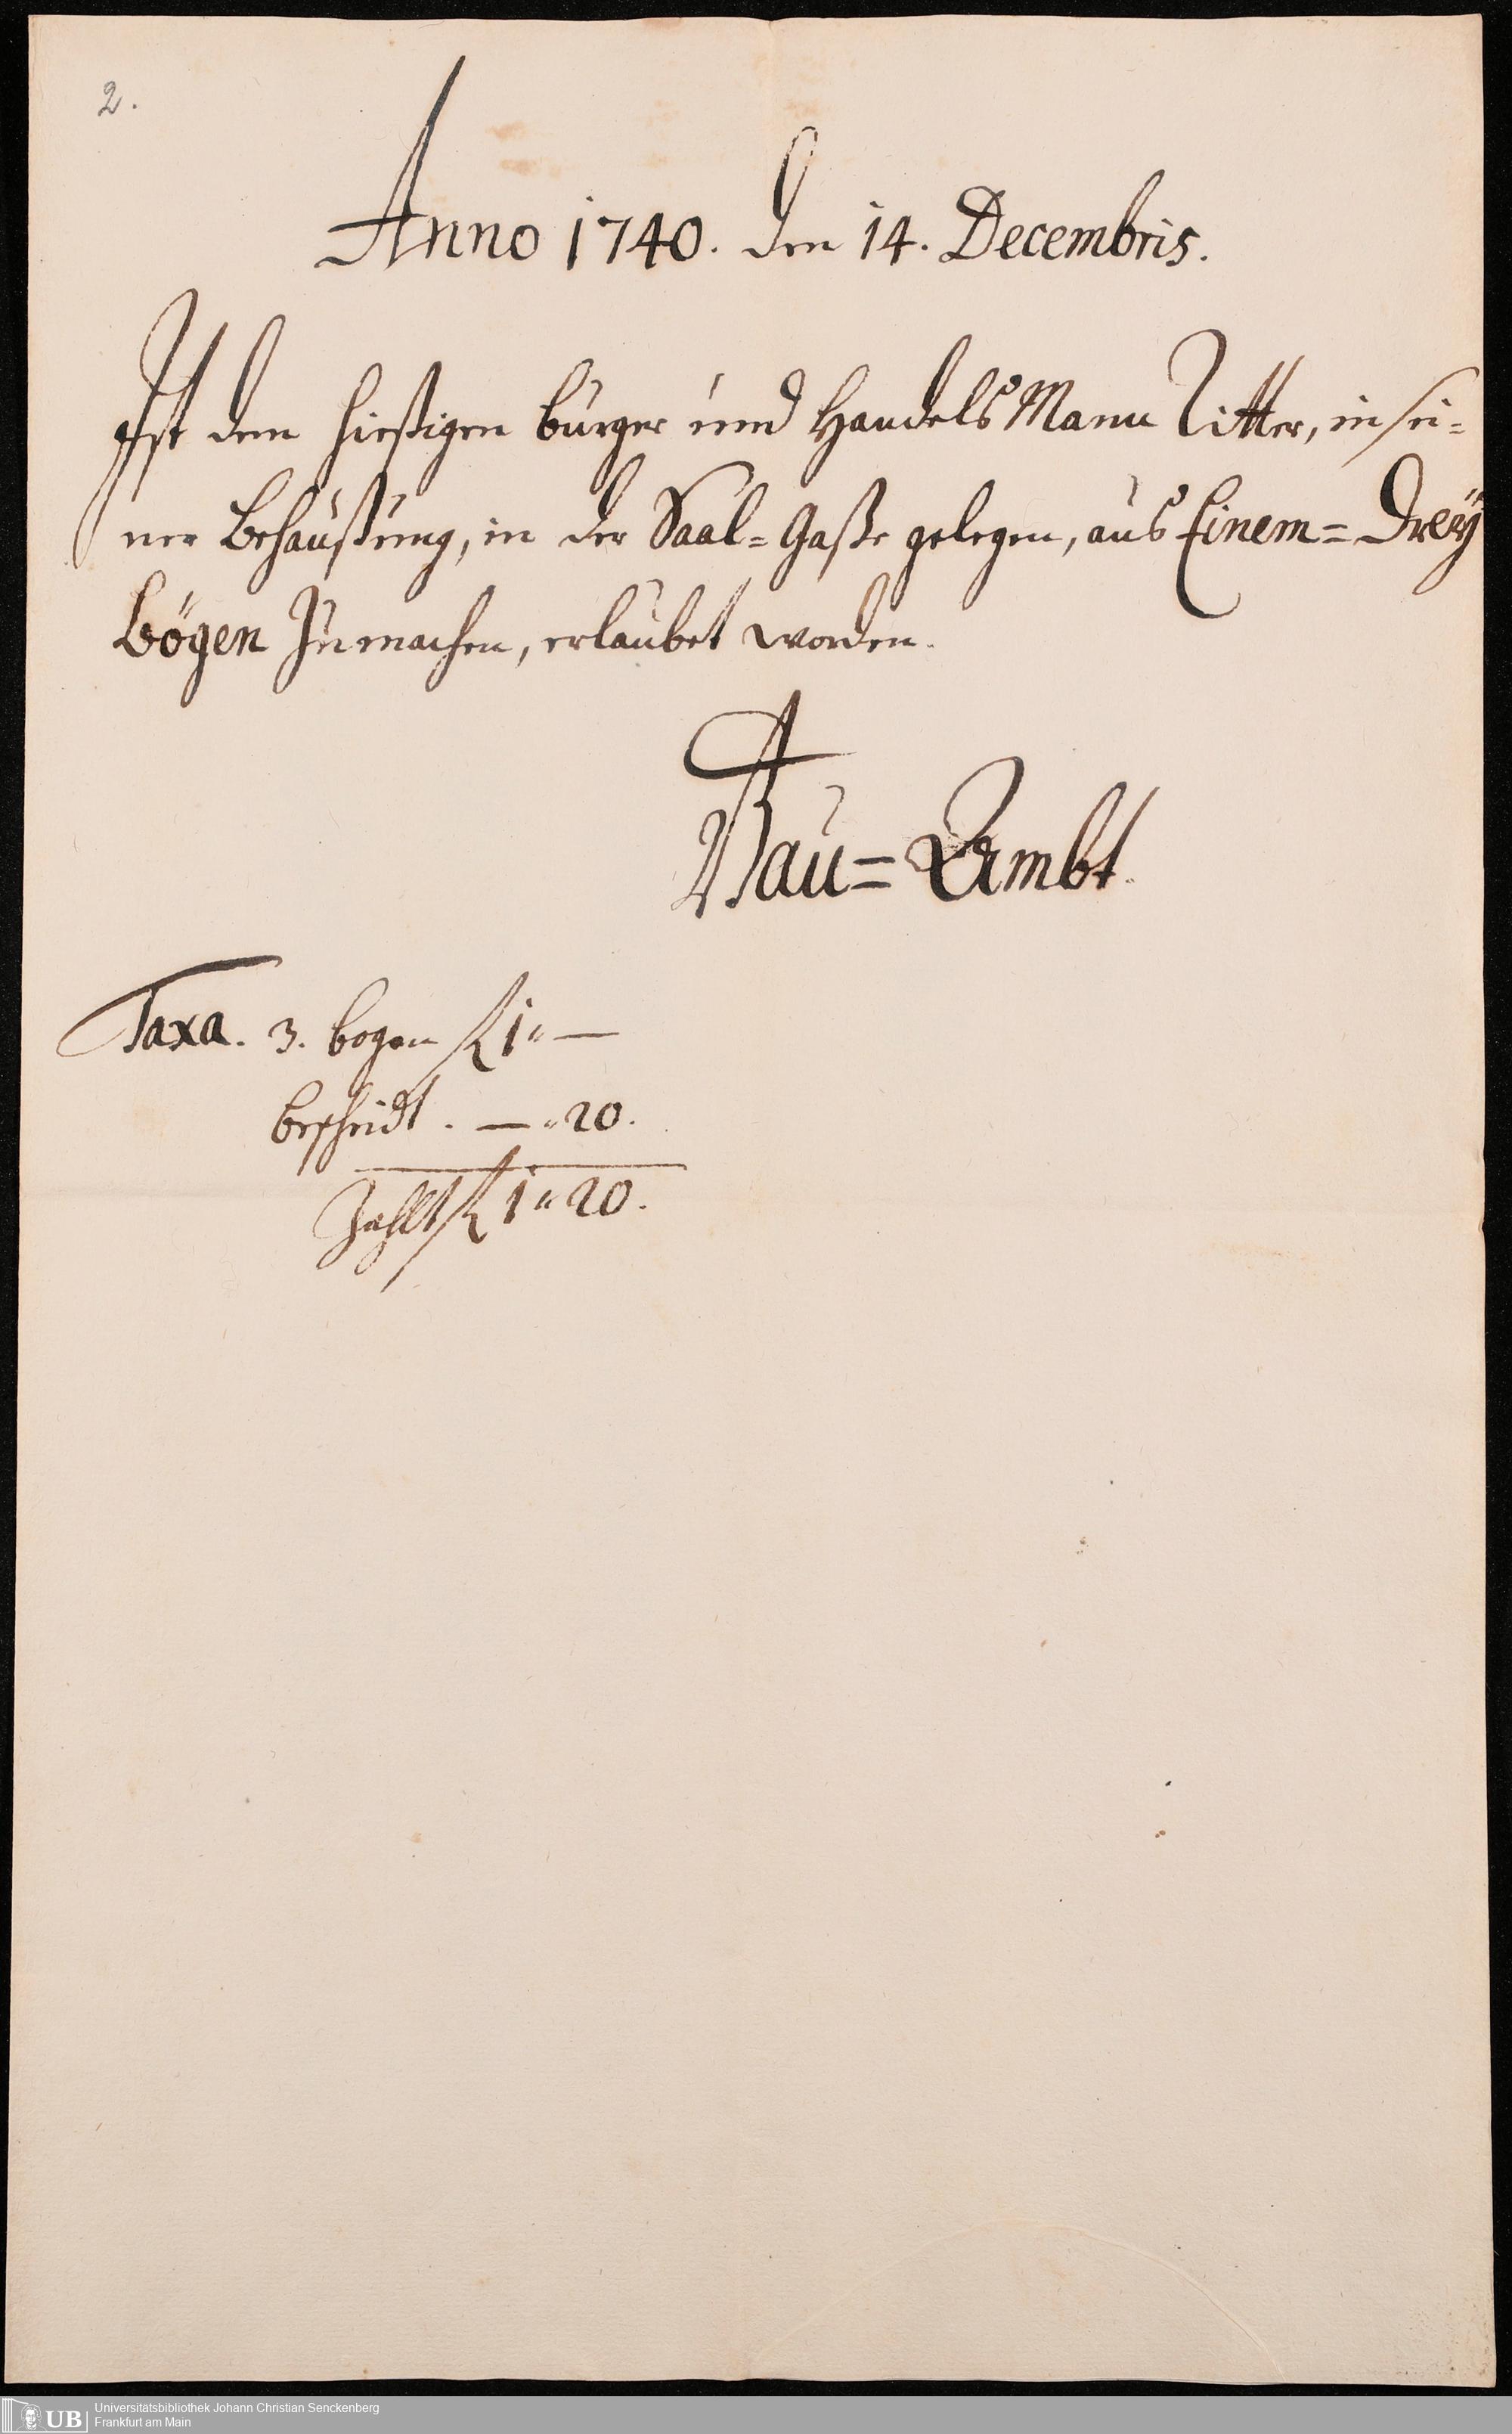 2.
Anno 1740. den 14. Decembris.
Ist dem hießigen bürger und Handels Mann Ritter, in sei=
ner Behaußung, in der Saal=Gaße gelegen, aus Einem= Dreÿ
Bögen zu machen, erlaubet worden.
Bau=Ambt.
Taxa. 3. bogen fl 1 " —
bescheidt . — " 20.
Zahlt fl 1 " 20.
UB Universitätsbibliothek Johann Christian Senckenberg
Frankfurt am Main